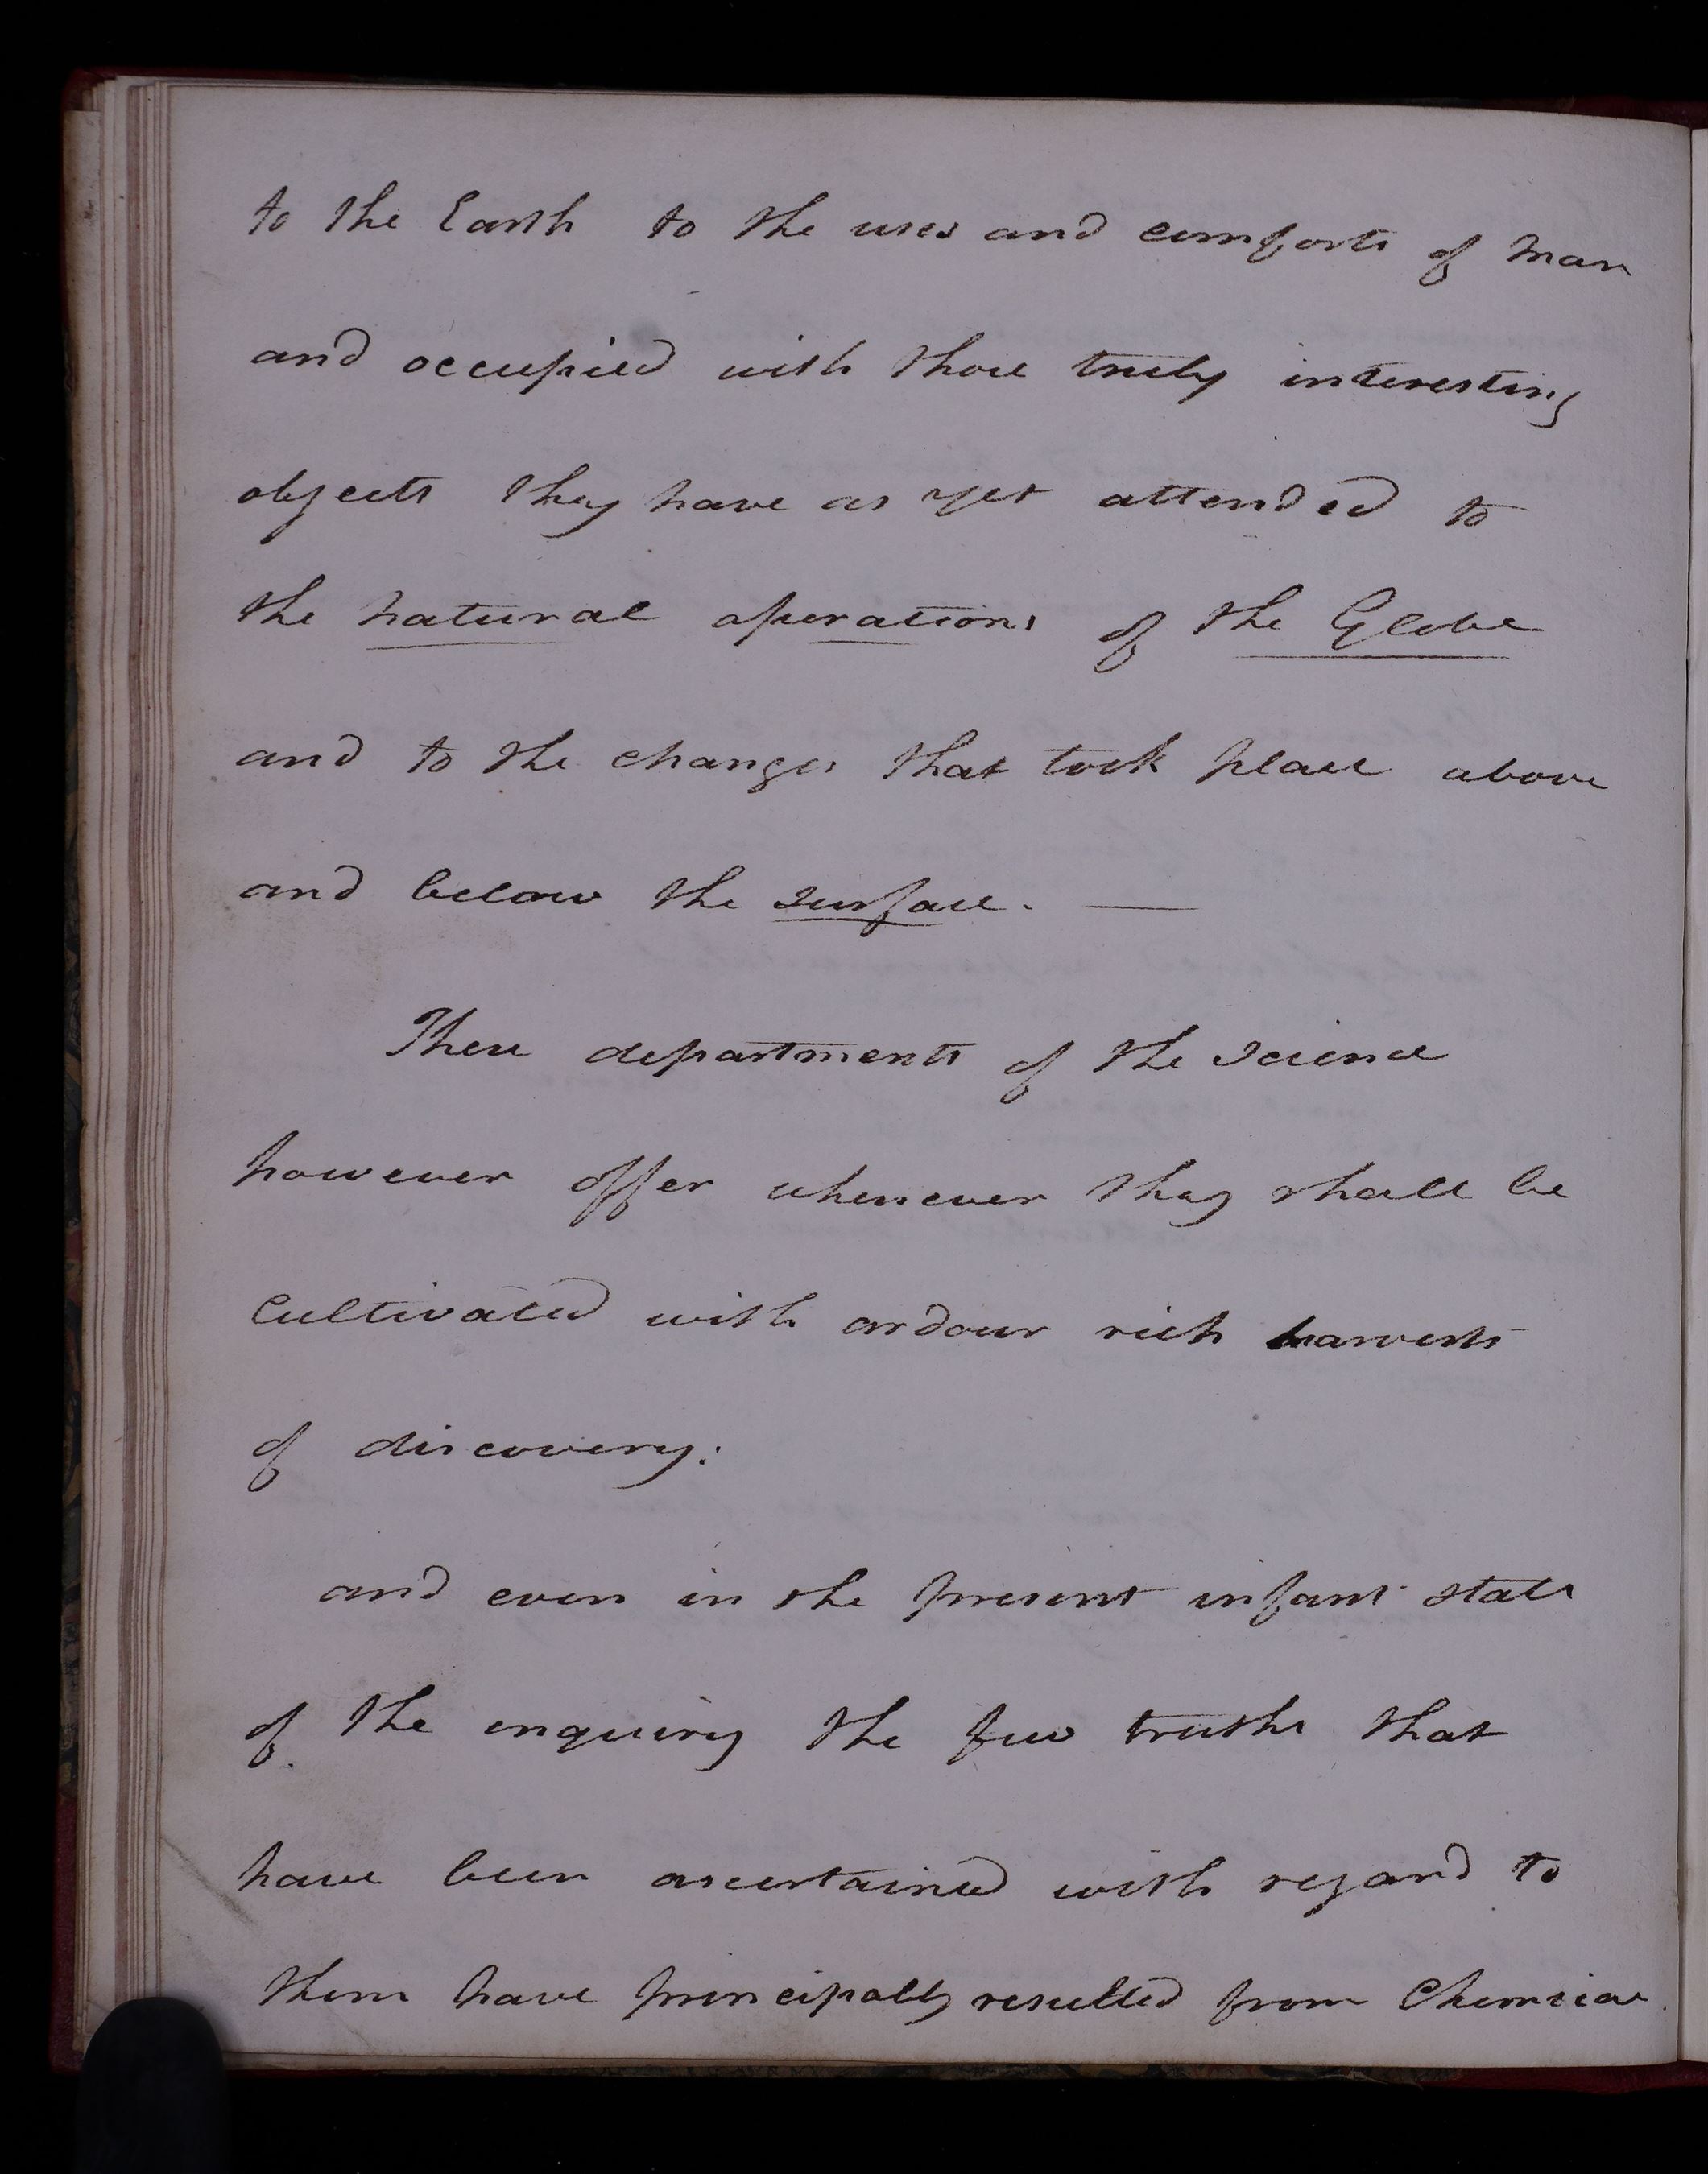 to the Earth to the uses and comforts of Man
and occupied with those truly interesting
objects they have as yet attended to
the natural operations of the Globe
and to the changes that took place above
and below the surface. —
These departments of the Science
however offer whenever they shall be
cultivated with ardour rich harvests
of discovery:
and even in the present infant state
of the enquiry the few truths that
have been ascertained with regard to
them have principally resulted from Chemical